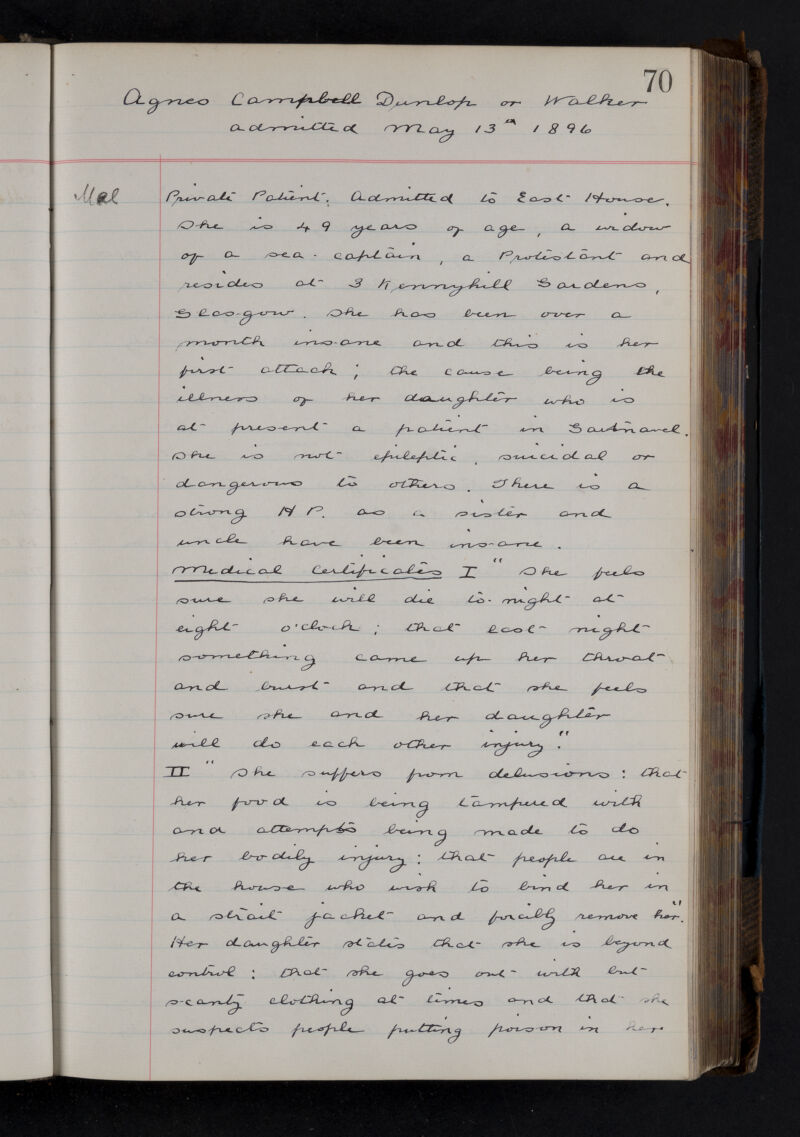 70
Agnes Campbell Dunlop or Walker
admitted May 13th 1896
Mel
Private Patient. Admitted to East House.
She is 49 years of age, a widow
of a sea-captain, a Protestant and
resides at 3 Kennyhill Gardens,
Glasgow. She has been over a
month insane and this is her
first attack; the cause being the
illness of her daughter who is
at present a patient in Gartnavel.
She is not epileptic, suicidal or
dangerous to others. There is a
strong H P. as a sister and
uncle have been insane.
Medical Certificates I "She feels
sure she will die to-night at
eight o'clock; that last night
something came up her throat
and burst and that she feels
sure she and her daughter
will do each other injury."
II "She suffers from delusions: that
her food is being tampered with
and attempts being made to do
her bodily injury: that people are in
the house who wish to bind her in
a strait jacket and forcibly remove her".
Her daughter states that she is beyond
control: that she goes out with but
scanty clothing at times and that she
suspects people putting poison in her